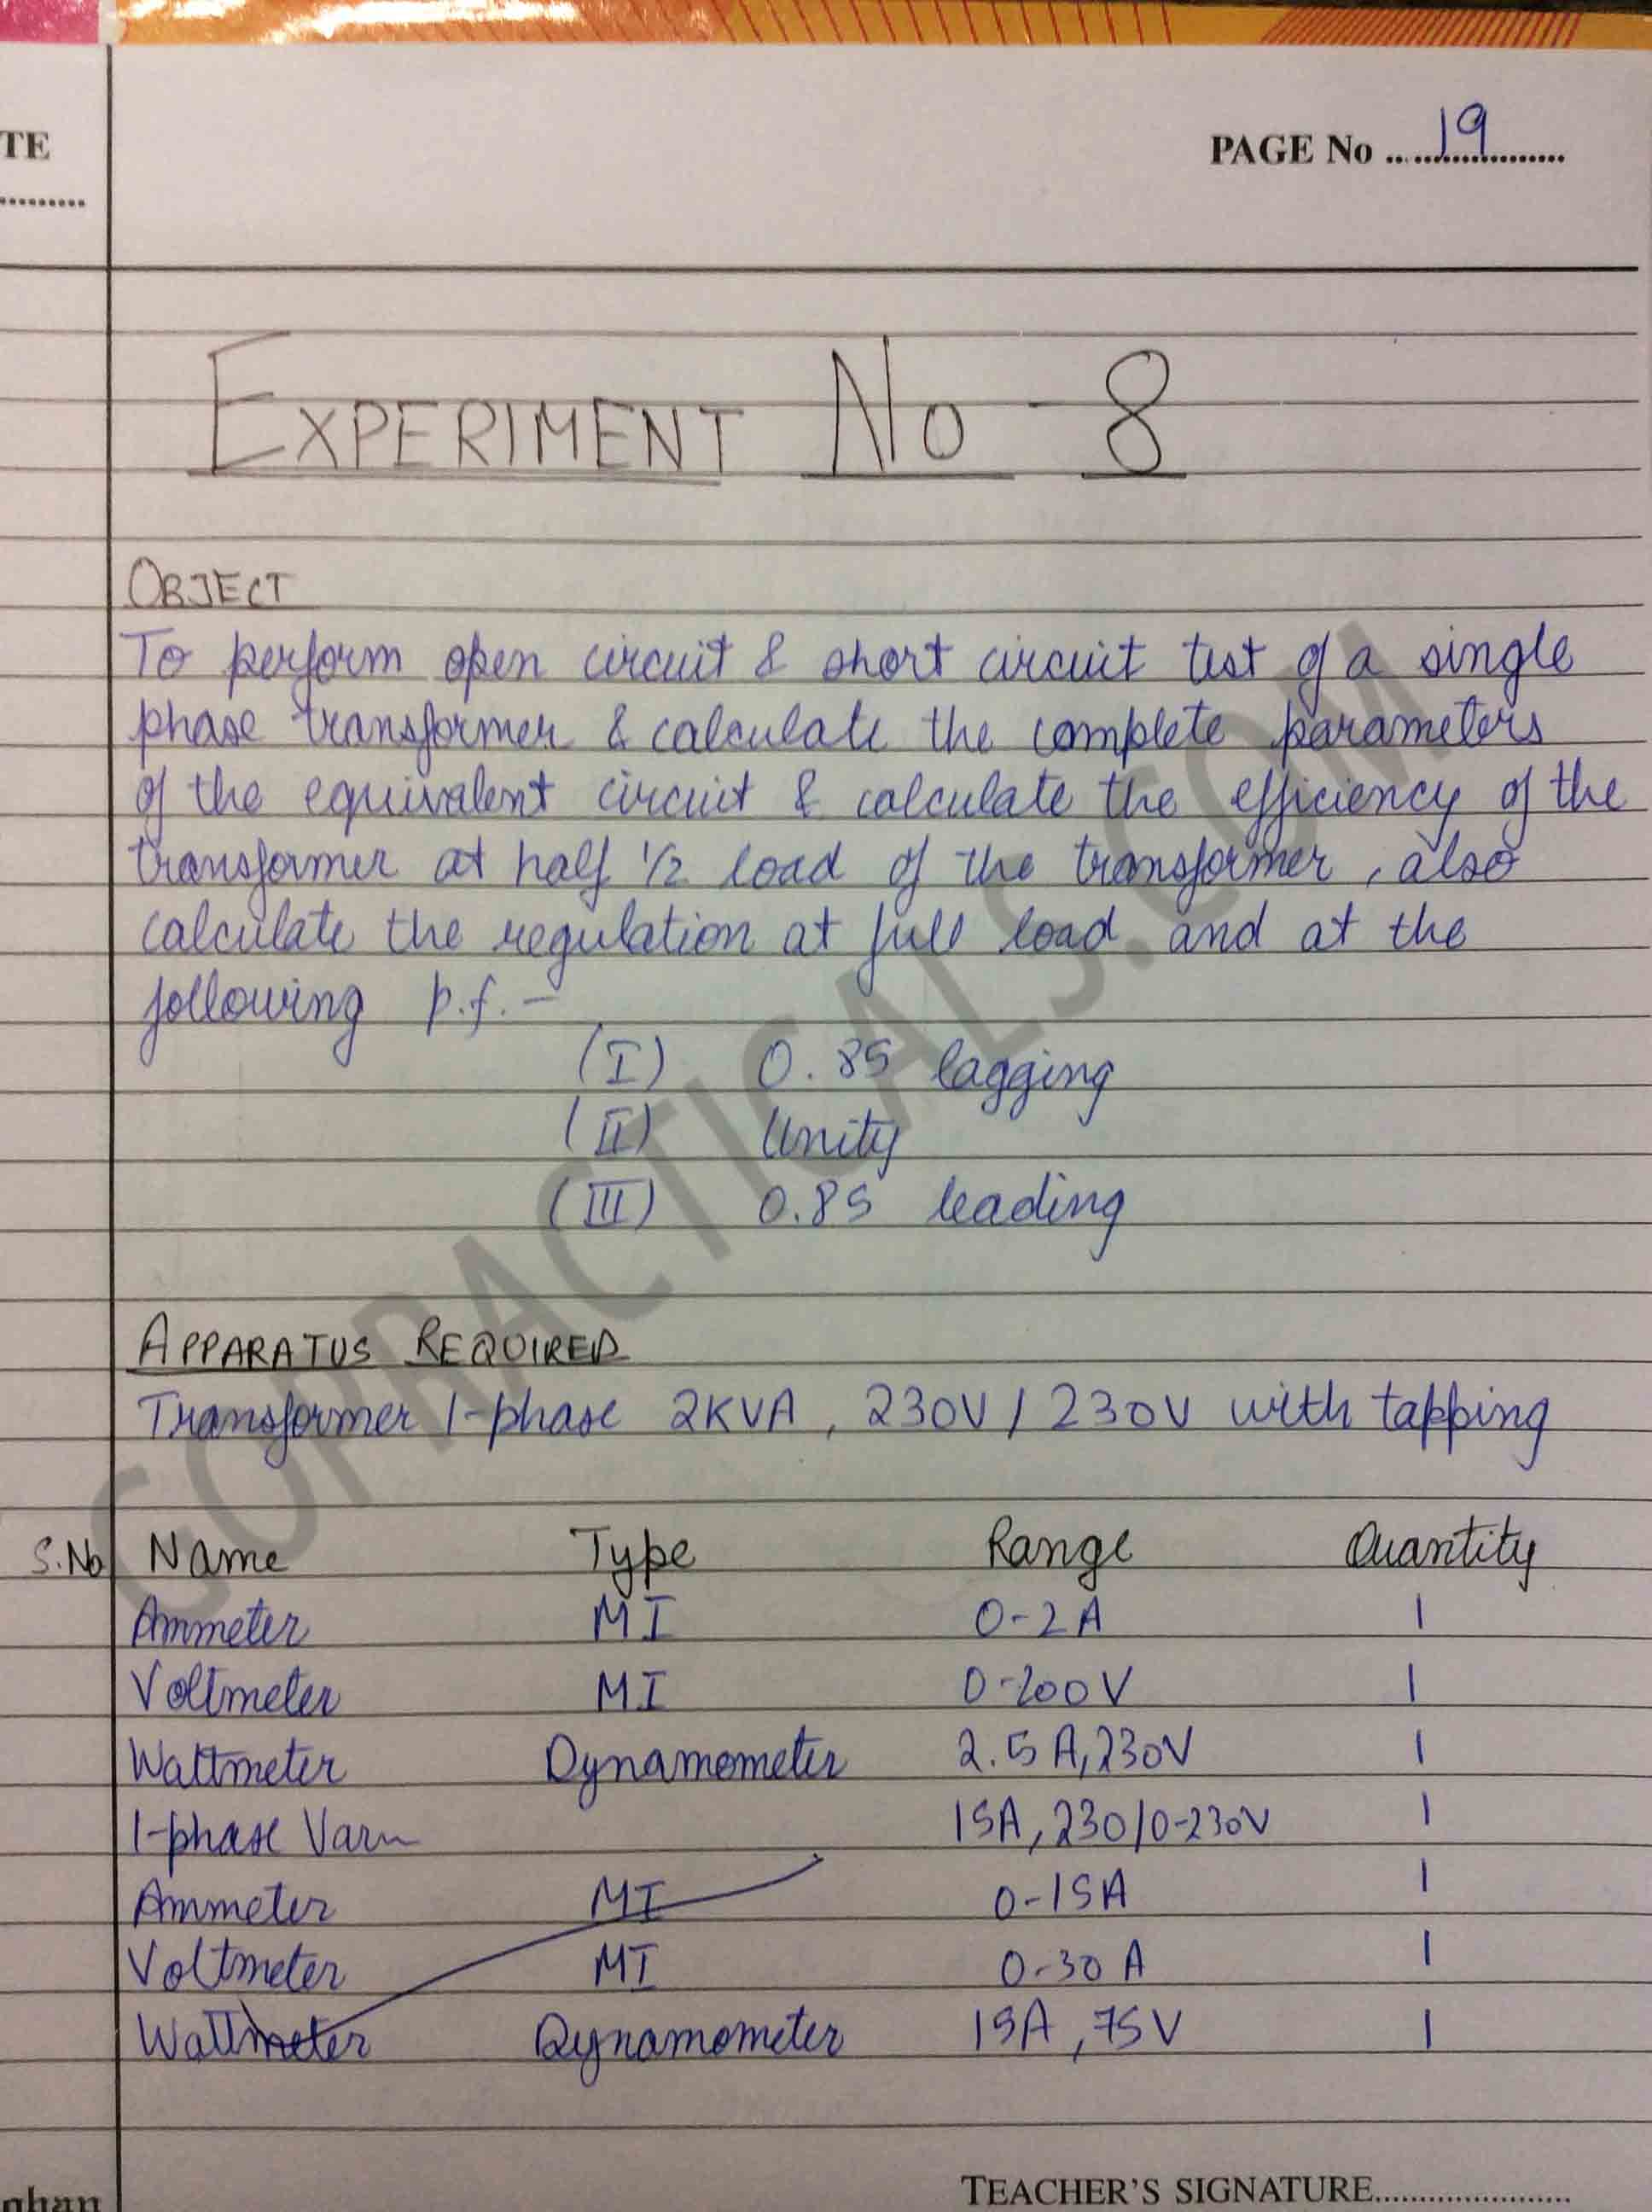 TE
PAGE No ........19........
.........
EXPERIMENT No - 8
OBJECT
To perform open circuit & short circuit test of a single
phase transformer & calculate the complete parameters
of the equivalent circuit & calculate the efficiency of the
transformer at half 1/2 load of the transformer, also
calculate the regulation at full load and at the
following p.f. -
(I) 0.85 lagging
(II) Unity
(III) 0.85 leading
APPARATUS REQUIRED
Transformer 1-phase 2KVA, 230V/230V with tapping
S.No Name Type Range Quantity
Ammeter MI 0-2A 1
Voltmeter MI 0-200V 1
Wattmeter Dynamometer 2.5A,230V 1
1-phase 15A, 230/0-230V 1
Ammeter MI 0-15A 1
Voltmeter MI 0-30 A 1
Wattmeter Dynamometer 15A, 75V 1
TEACHER'S SIGNATURE......................
GOPRACTICALS.COM